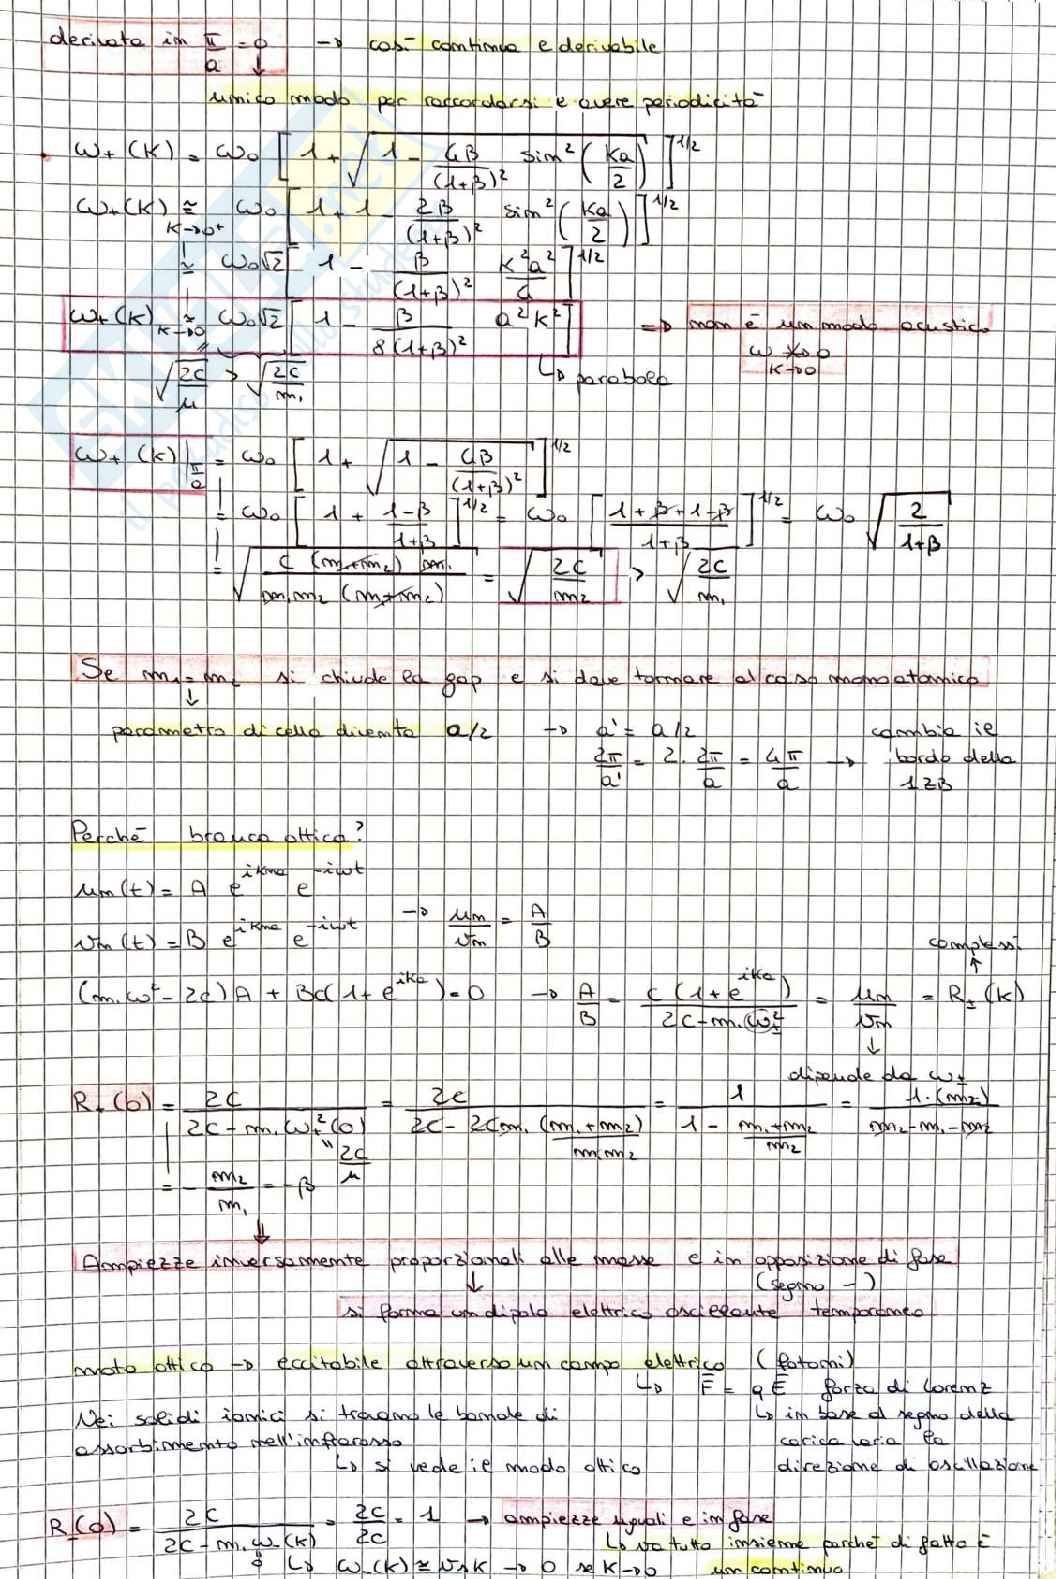 derivata in π/a = 0 → così continua e derivabile
↓
unico modo per raccordarsi e avere periodicità
• ω₊(K) = ω₀ [1 + √(1 - 4β/(1+β)² sin²(Ka/2))]^1/2
ω₊(K) ≅ K→0⁺ ω₀ [1 + 1 - 2β/(1+β)² sin²(Ka/2)]^1/2
≅ ω₀√2 [1 - β/(1+β)² K²a²/4]^1/2
ω₊(K) ≅ K→0 ω₀√2 [1 - β/8(1+β)² a²K²] ⇒ non è un modo acustico
ω ↛ 0 K→0
√(2C/μ) > √(2C/m₁) ↳ parabola
ω₊(K)|π/a = ω₀ [1 + √(1 - 4β/(1+β)²)]^1/2
= ω₀ [1 + 1-β/1+β]^1/2 = ω₀ [1+β+1-β/1+β]^1/2 = ω₀ √(2/1+β)
= √(C (m₁+m₂) 2m₁/m₁m₂ (m₁+m₂)) = √(2C/m₂) > √(2C/m₁)
Se m₁=m₂ si chiude la gap e si deve tornare al caso monoatomico
↓
parametro di cella diventa a/2 → a' = a/2 cambia il
2π/a' = 2·2π/a = 4π/a → bordo della
1ZB
Perché branca ottica?
un(t) = A e^ikna e^-iωt
vn(t) = B e^ikna e^-iωt → un/vn = A/B
complessi
↑
(m₁ω²-2C)A + BC(1+e^ika) = 0 → A/B = C(1+e^ika)/2C-m₁ω±² = un/vn = R±(K)
↓
dipende da ω±
R₊(0) = 2C/2C-m₁ω₊²(0) = 2C/2C-2Cm₁(m₁+m₂)/m₁m₂ = 1/1-m₁+m₂/m₂ = 1·(m₂)/m₂-m₁-m₂
" 2C/μ
= -m₂/m₁ = -β
↓
Ampiezze inversamente proporzionali alle masse e in opposizione di fase
↓ (segno -)
si forma un dipolo elettrico oscillante temporaneo
moto ottico → eccitabile attraverso un campo elettrico (fotoni)
↳ F̄ = qĒ forza di Lorenz
Nei solidi ionici si trovano le bande di ↳ in base al segno della
assorbimento nell'infrarosso carica varia la
↳ si vede il modo ottico direzione di oscillazione
R₋(0) = 2C/2C-m₁ω₋(K) = 2C/2C = 1 → ampiezze uguali e in fase
↳ va tutto insieme perché di fatto è
↳ ω₋(K) ≅ vsK → 0 se K→0 un continuo